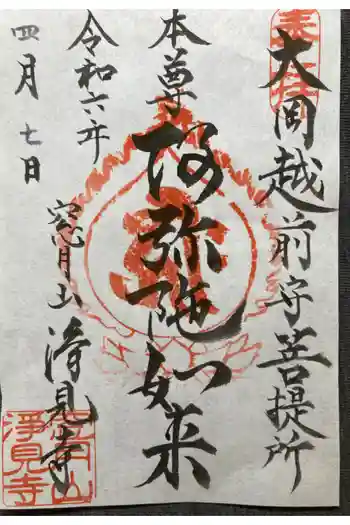 奉拝
大岡越前守菩提所
本尊
阿弥陀如来
令和六年
四月七日
窓月山 浄見寺
窓月山
淨見寺